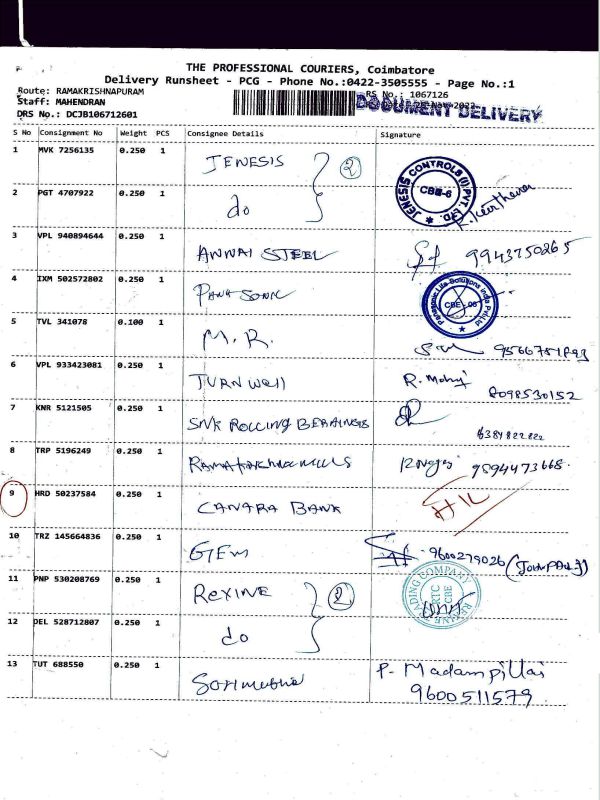 THE PROFESSIONAL COURIERS, Coimbatore
Delivery Runsheet - PCG - Phone No.:0422-3505555 - Page No.:1
Route: RAMAKRISHNAPURAM
RS No.: 1067126
Staff: MAHENDRAN
DOCUMENT DELIVERY
DRS No.: DCJB106712601
S No Consignment No Weight PCS Consignee Details Signature
1 MVK 7256135 0.250 1 JENESIS 2
JENESIS CONTROLS (I) PVT. LTD. CBE-6
2 PGT 4707922 0.250 1 do R. Keerthana
3 VPL 940894644 0.250 1 ANNAI STEEL 9943750265
4 IXM 502572802 0.250 1 PANASONIC
Panasonic Life Solutions India Pvt Ltd CBE - 06
5 TVL 341078 0.100 1 M.R.
6 VPL 933423081 0.250 1 TURN Well R. Mohj 8098530152
7 KNR 5121505 0.250 1 SNK ROLLING BEARINGS 6384822822
8 TRP 5196249 0.250 1 9594473668.
9 HRD 50237584 0.250 1 CANARA BANK
10 TRZ 145664836 0.250 1 GEM 9600279026
11 PNP 530208769 0.250 1 Rexine 2
REXINE TRADING COMPANY CBE
12 DEL 528712807 0.250 1 do
13 TUT 688550 0.250 1 P. Madampillai
9600511579